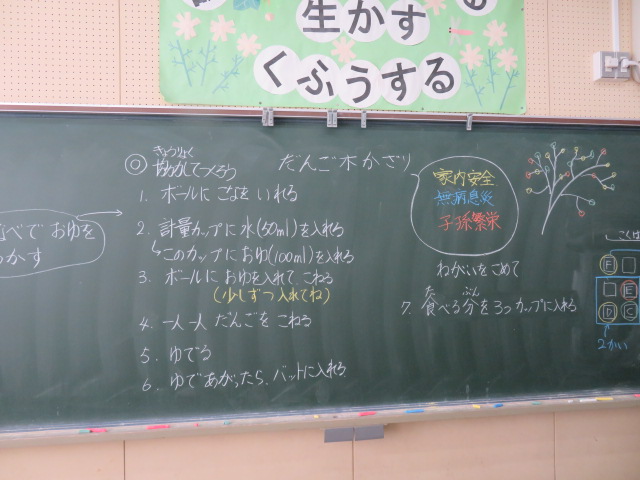 生かす
くふうする
◎協力して つくろう
きょうりょく
だんご木かざり
家内安全
無病息災
子孫繁栄
ねがいをこめて
1. ボールに こなを いれる
2. 計量カップに水(50ml)を入れる
↳このカップに おゆ(100ml)を入れる
3. ボールに おゆを入れて こねる
(少しずつ入れてね)
4. 一人一人 だんごを こねる
5. ゆでる
6. ゆであがったら、バットに入れる
7. 食べる分を3つカップに入れる
た ぶん
なべで おゆを
かす
E
E
D
C
2かい